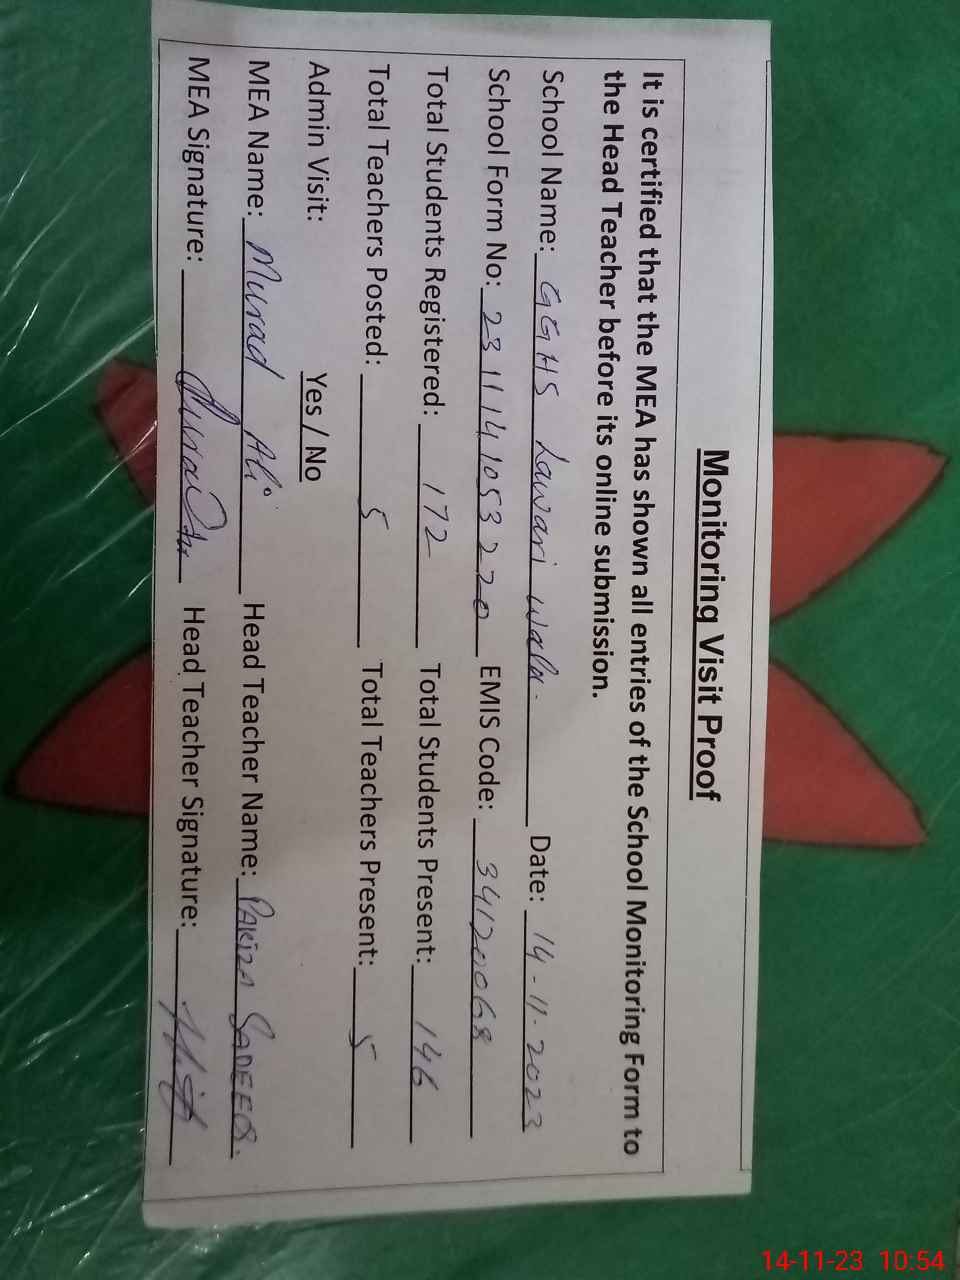 Monitoring Visit Proof
It is certified that the MEA has shown all entries of the School Monitoring Form to
the Head Teacher before its online submission.
School Name: GGHS Lawari Wala. Date: 14-11-2023
School Form No: 2311141053270 EMIS Code: 34120068
Total Students Registered: 172 Total Students Present: 146
Total Teachers Posted: 5 Total Teachers Present: 5
Admin Visit: Yes / No
MEA Name: Murad Ali Head Teacher Name: PAKIZA SADEEQ.
MEA Signature: Head Teacher Signature:
14-11-23 10:54